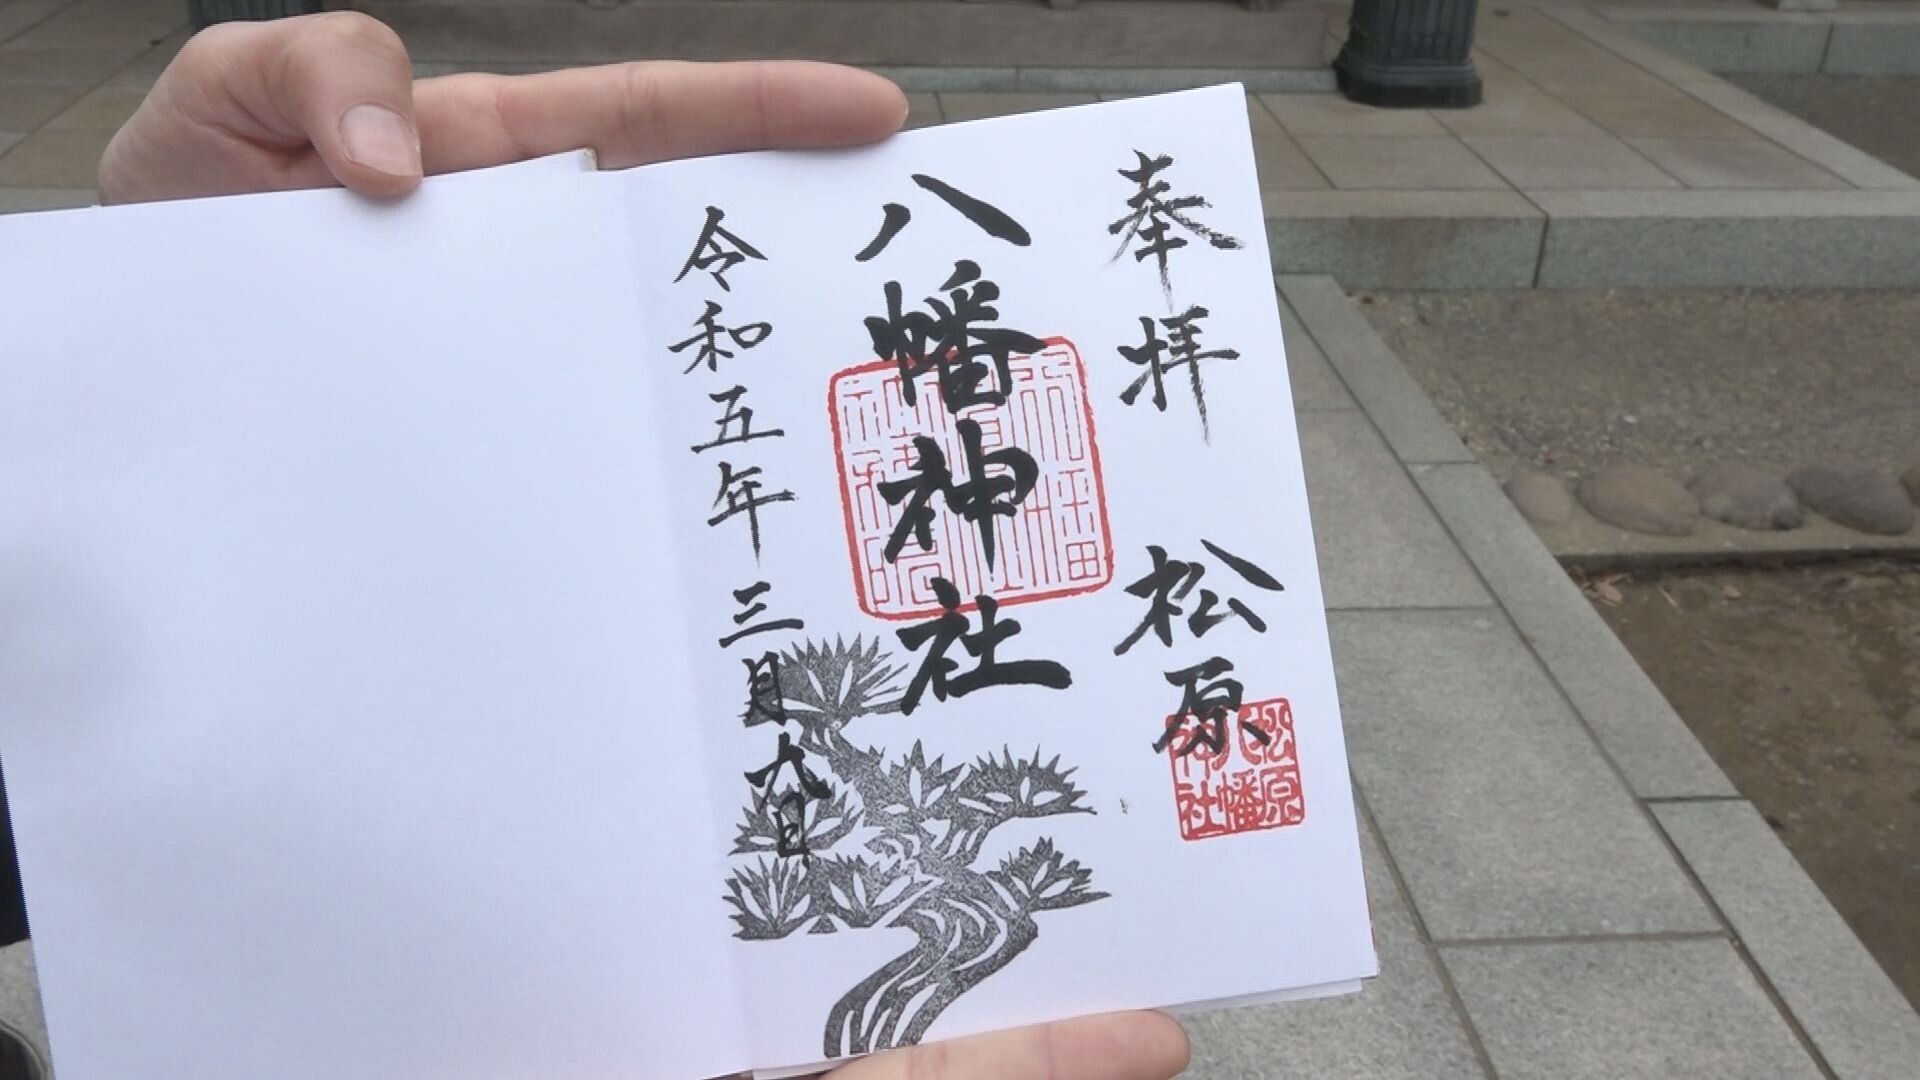 奉拝 松原
八幡神社
令和五年三月九日
松原
八幡
神社